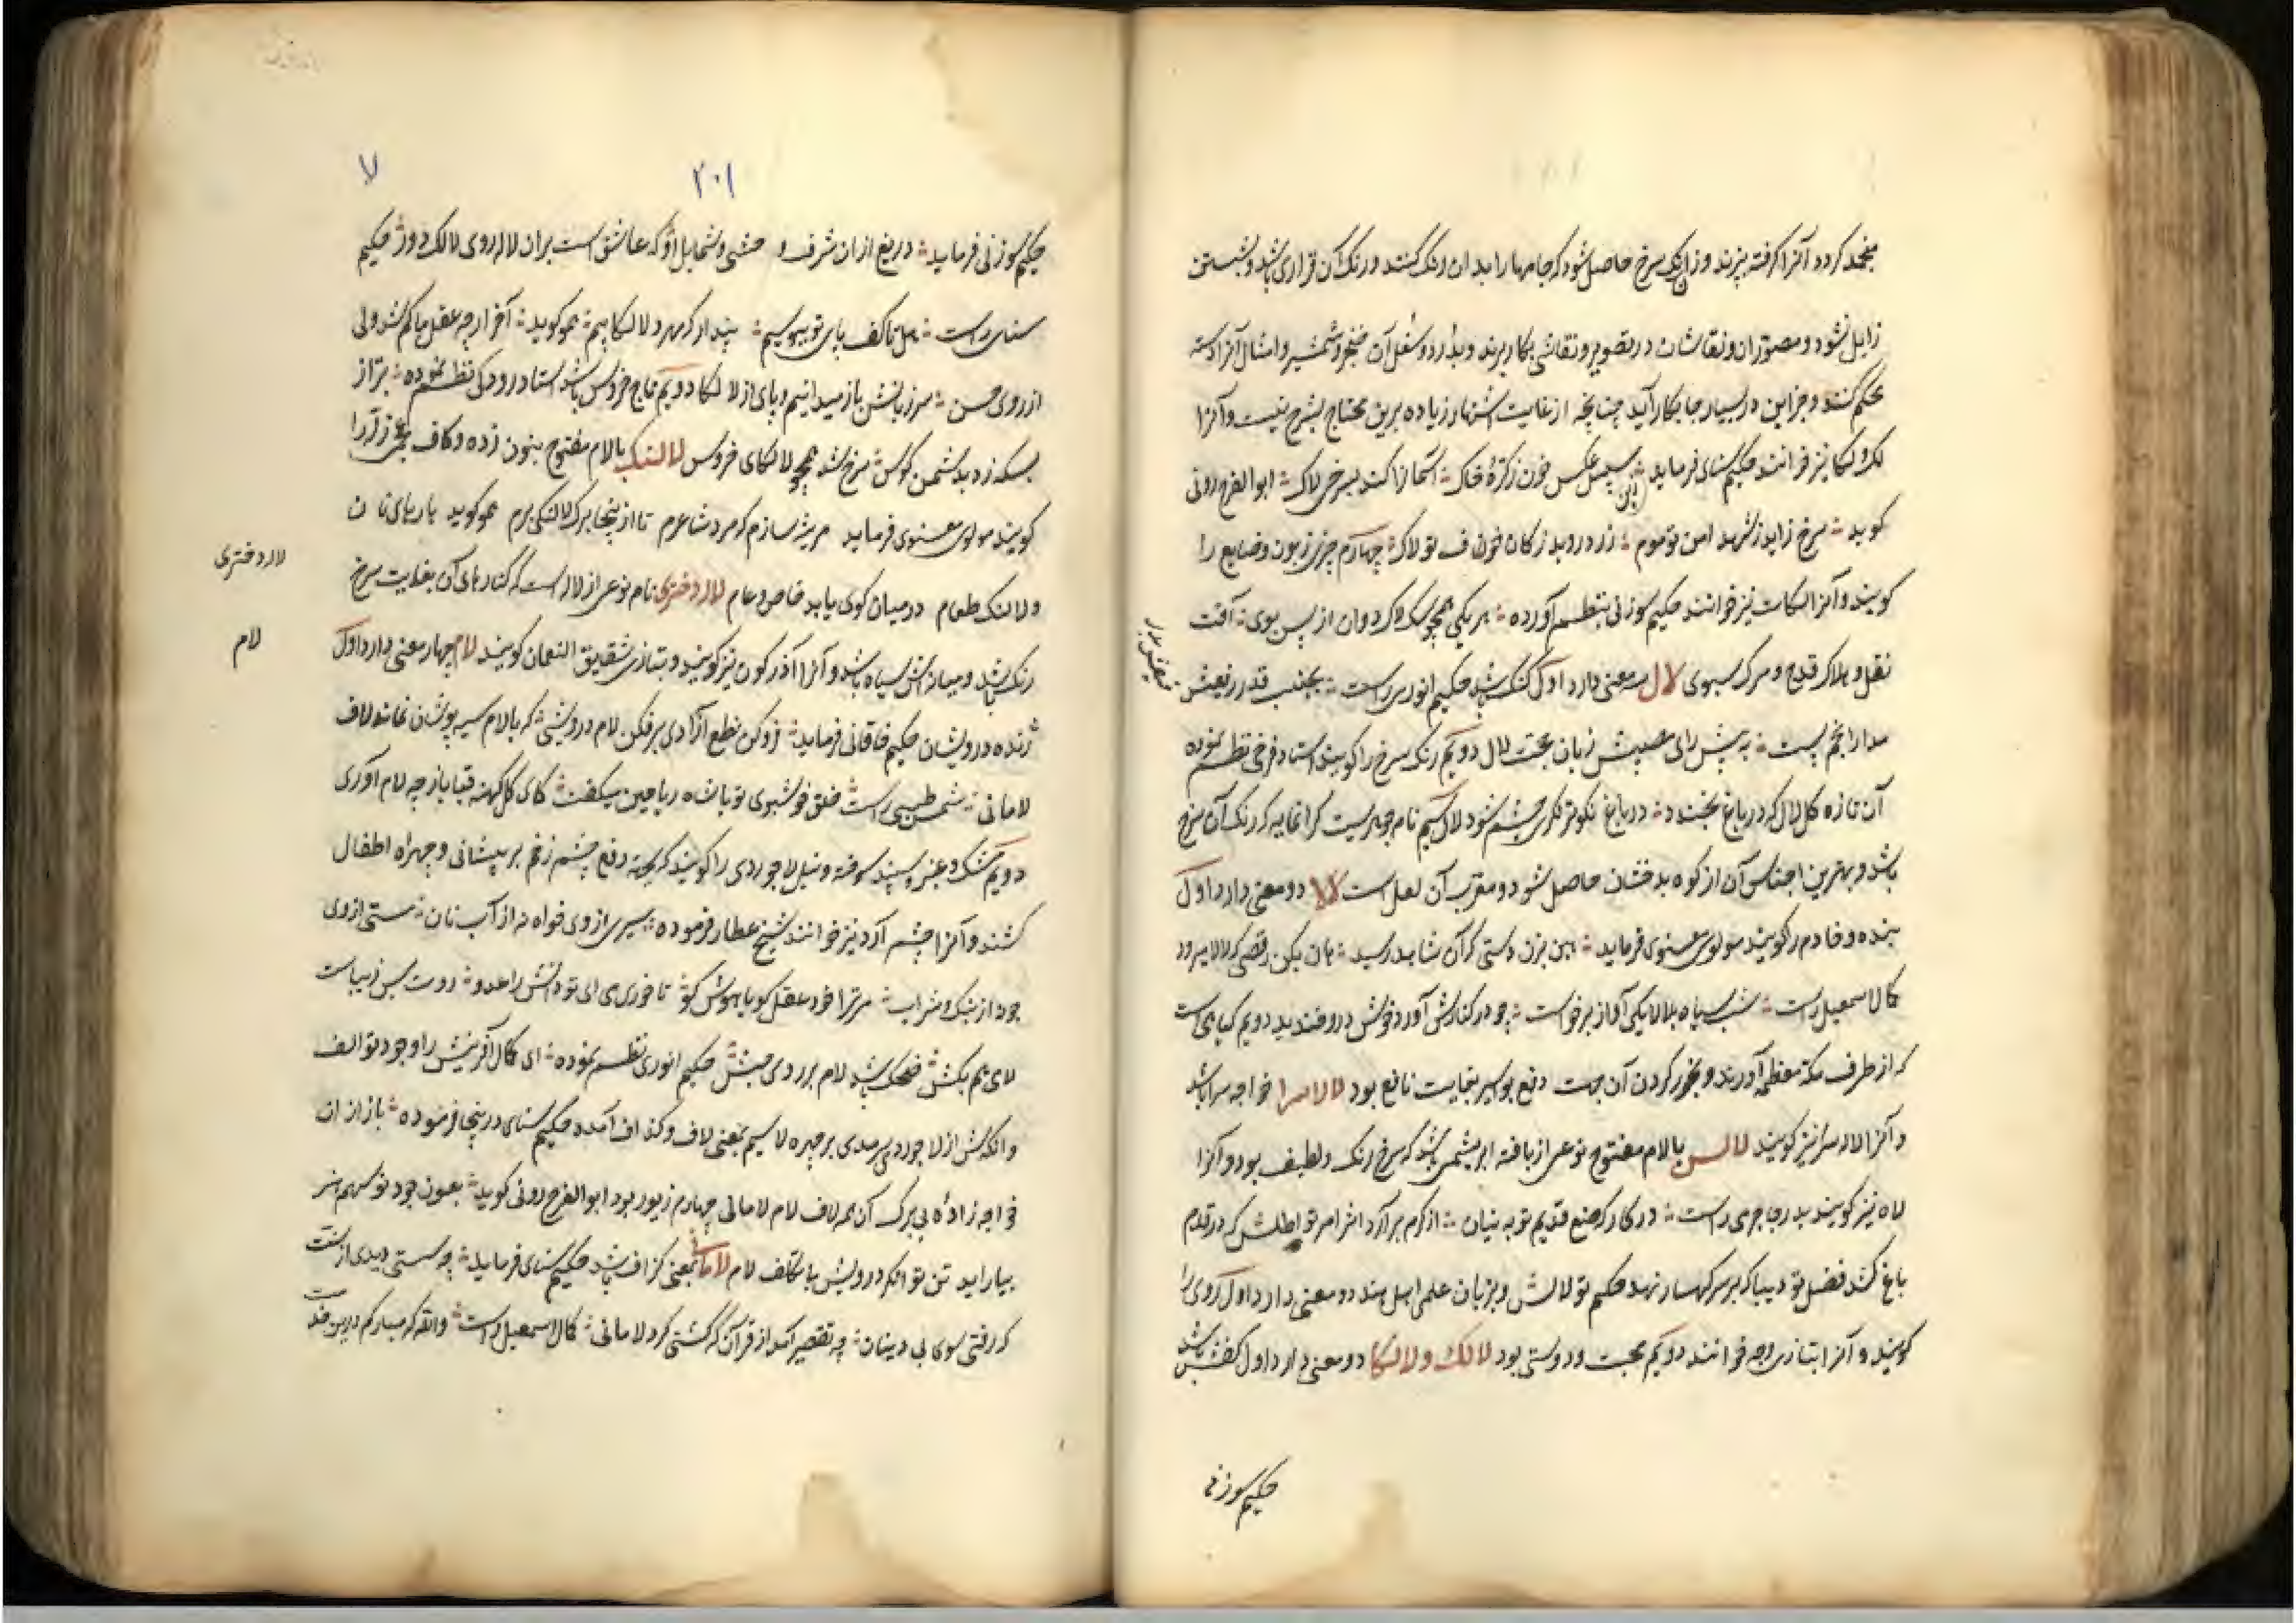 منجمد کردد آنرا کرفته بپزند وزان رنک سرخ حاصل شود که جامها را بدان رنک کنند و رنک آن قراری باشد و بشستن
زایل نشود و مصوران و نقاشان در تصویر و نقاشی بکار برند و بدُرد و سفل آن خنجر و شمشیر و امثال آنرا دسته
محکم کنند و جز این در بسیار جا بکار آید چنانچه از غایت اشتهار زیاده برین محتاج بشرح نیست و آنرا
لک و لکا نیز خوانند حکیم سنای فرماید عکس خون زکرهٔ خاک آسمانرا کند بسرخی لاک ابوالفرج رونی
کوید سرخ زاید زشهد امن تو موم زرد روید زکان خون ف تو لاک چهارم چیزی زبون و ضایع را
کویند و آنرا لکات نیز خوانند حکیم سوزنی بنظم آورده هر یکی همچو سک لاک دوان از پس بوی آفت
نقل و هلاک قدح و مرک سبوی لال سه معنی دارد اول کنک باشد حکیم انوری راست بجنب قدر رفیعش
مدار انجم پست به پیش رای مصیبش زبان حجت لال دویم رنک سرخ را کویند استاد فرخی نظم نموده
آن تازه کل لال که در باغ بخندد در باغ نکوتر نکری چشم شود لال سیم نام جوهریست کرانمایه که رنک آن سرخ
باشد و بهترین اجناس آن از کوه بدخشان حاصل شود و معرب آن لعل است لالا دو معنی دارد اول
بنده و خادم را کویند مولوی معنوی فرماید هین بزن دستی که آن شاهد رسید هان بکن رقصی که لالا میرود
کمال اسمعیل راست شب سیاه بلالایکی آواز برخواست چو در کنارش آورد خوش درو خندید دویم کیاهیست
که از طرف مکه معظمه آورند و بخور کردن آن جهت دفع بواسیر بغایت نافع بود لالاسرا خواجه سرا باشد
و آنرا لاله سرا نیز کویند لالس با لام مفتوح نوعی از بافته ابریشمی باشد که سرخ رنک و لطیف بود و آنرا
لاه نیز کویند بدر جاجرمی راست در کارکه صنع قدیم تو به بنیان از کرم برآرد اثر امر تو اطلس که در قدم
باغ کند فضل تو دیبا که بر سر کهسار نهد حکم تو لالس و بزبان علمی اهل هند دو معنی دارد اول روی را
کویند و آنرا بتازی وجه خوانند دویم محبت و دوستی بود لالک و لالکا دو معنی دارد اول کفش باشد
حکیم سوزنی
۲۰۱
لا
حکیم سوزنی فرماید دریغ از ان شرف و حشی و شمایل او که عاشق است بران لاله روی لالک دوز حکیم
سنای راست هل تا کف پای تو ببوسیم پندار که مهرهٔ لالکاییم همو کوید آخر ار چه عقل ما کم شد ولی
از روی حس سر ز بالشت باز میدانیم و پای از لالکا دویم تاج خروس باشد استاد رودکی نظم نموده
بسکه زد بدشمن کوس سرخ شد همچو لالکای خروس لالنک با لام مفتوح بنون زده و کاف عجمی زله را
کویند مولوی معنوی فرماید تا از ینجا برک لالنکی برم همو کوید پارهای نان
و لالنک طعام در میان کوی یابد خاص و عام لاله دختری نام نوعی از لاله است که کنارهای آن بغایت سرخ
رنک باشد و میانهاش سیاه باشد و آنرا آذرکون نیز کویند و بتازی شقایق النعمان کویند لام چهار معنی دارد اول
ژنده درویشان حکیم خاقانی فرماید فروکن نطع آزادی برفکن لام درویشی که با لام سیه پوشان نماند لاف
لامانی شمس طبسی راست خلق خوشبوی تو باشاه ریاحین میکفت کای کل کهنه قبا باز چه لام آوردی
دویم مشک و عنبر و سپند سوخته و نیل لاجوردی را کویند که بجهة دفع چشم زخم بر پیشانی و چهره اطفال
کشند و آنرا چشم آرو نیز خوانند شیخ عطار فرموده سیری از وی خواه نه از آب نان مستی از وی
جو نه از بنک و شراب
حکیم انوری نظم نموده ای کمال آفرینش را وجود تو الف
وانکهش از لاجورد سرمدی بر چهره لا سیم بمعنی لاف و کذاف آمده حکیم سنای درینجا فرموده باز از ان
خواجه زادهٔ بی برک آن همه لاف لام لامانی چهارم زیور بود ابوالفرج رونی کوید بعون جود تو سهم هنر
بیاراید تن توانکر درویش با تکلف لام لامانی بمعنی کزاف باشد حکیم سنای فرماید چه سستی دیدی از سنت
که رفتی سوی بی دینان چه تقصیر آمد از قرآن که کشتی کرد لامانی کمال اسمعیل راست
لاله دختری
لام